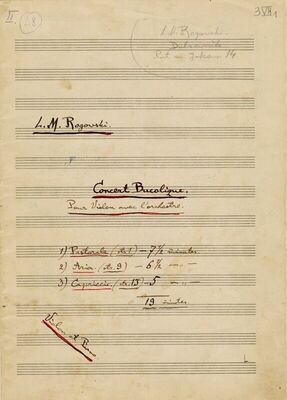 II. 68
L. M. Rogowski.
Dubrovnik
L. M. Rogowski.
Concert Bucolique.
Pour Violon avec l'orchestre.
1) Pastorale (str. 1) – 7 1/2 minutes.
2) Aria (str. 9) – 6 1/2 – „ –
3) Capriccio (str. 13) – 5 – „ –
19 minutes
Violon et Piano